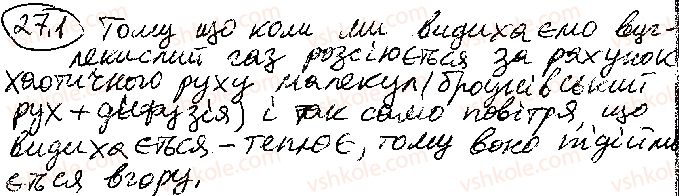 27.1 Тому що коли ми видихаємо вуг-
лекислий газ розсіюється за рахунок
хаотичного руху малекул (броунівський
рух + дифузія) і так само повітря, що
видихається - теплює, тому воно підійма
ється вгору.